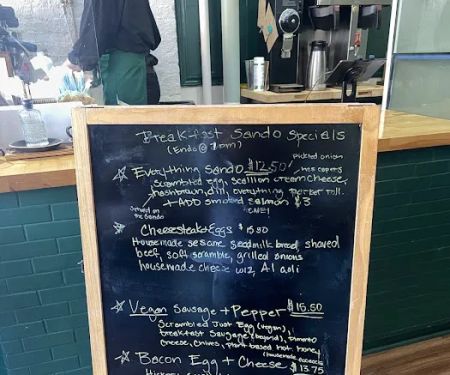 Breakfast Sando Specials
(Ends @ 2pm)
Everything Sando $12.50
pickled onion
has capers
scrambled egg, scallion cream cheese,
hashbrown, dill, everything parker roll.
+ ADD smoked salmon $3
Served on
the Sando
Cheesesteak+Eggs
Housemade sesame seed milk bread, shaved
beef, soft scramble, grilled onions
housemade cheese wiz, A1 aoli
Vegan Sausage + Pepper $15.50
Scrambled Just Egg (vegan),
breakfast Sausage (beyond), tomato
cheese, chives, plant based hot honey
(housemade
Bacon Egg + Cheese $13.75